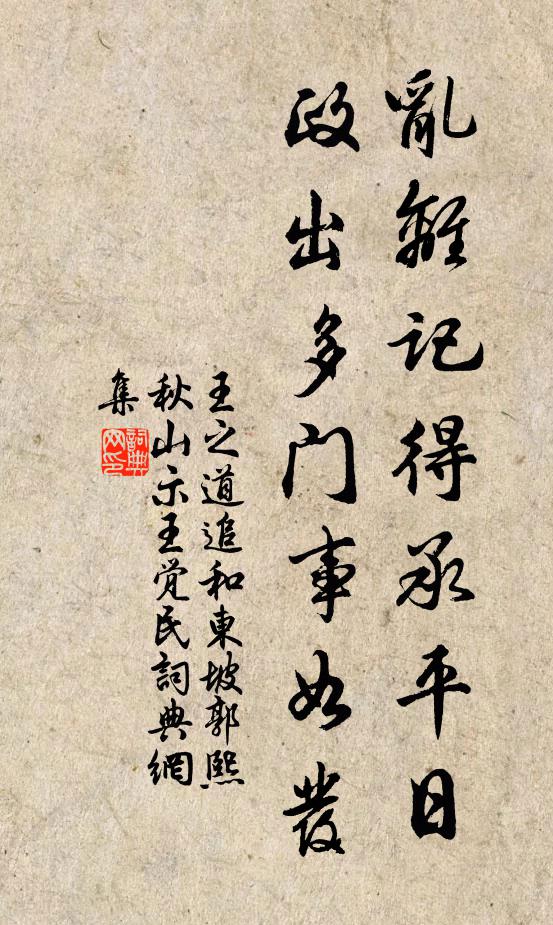 亂離記得承平日
政出多門事如發
王之道追和東坡郭熙
秋山示王覺民詞典網
集
詞典
网印